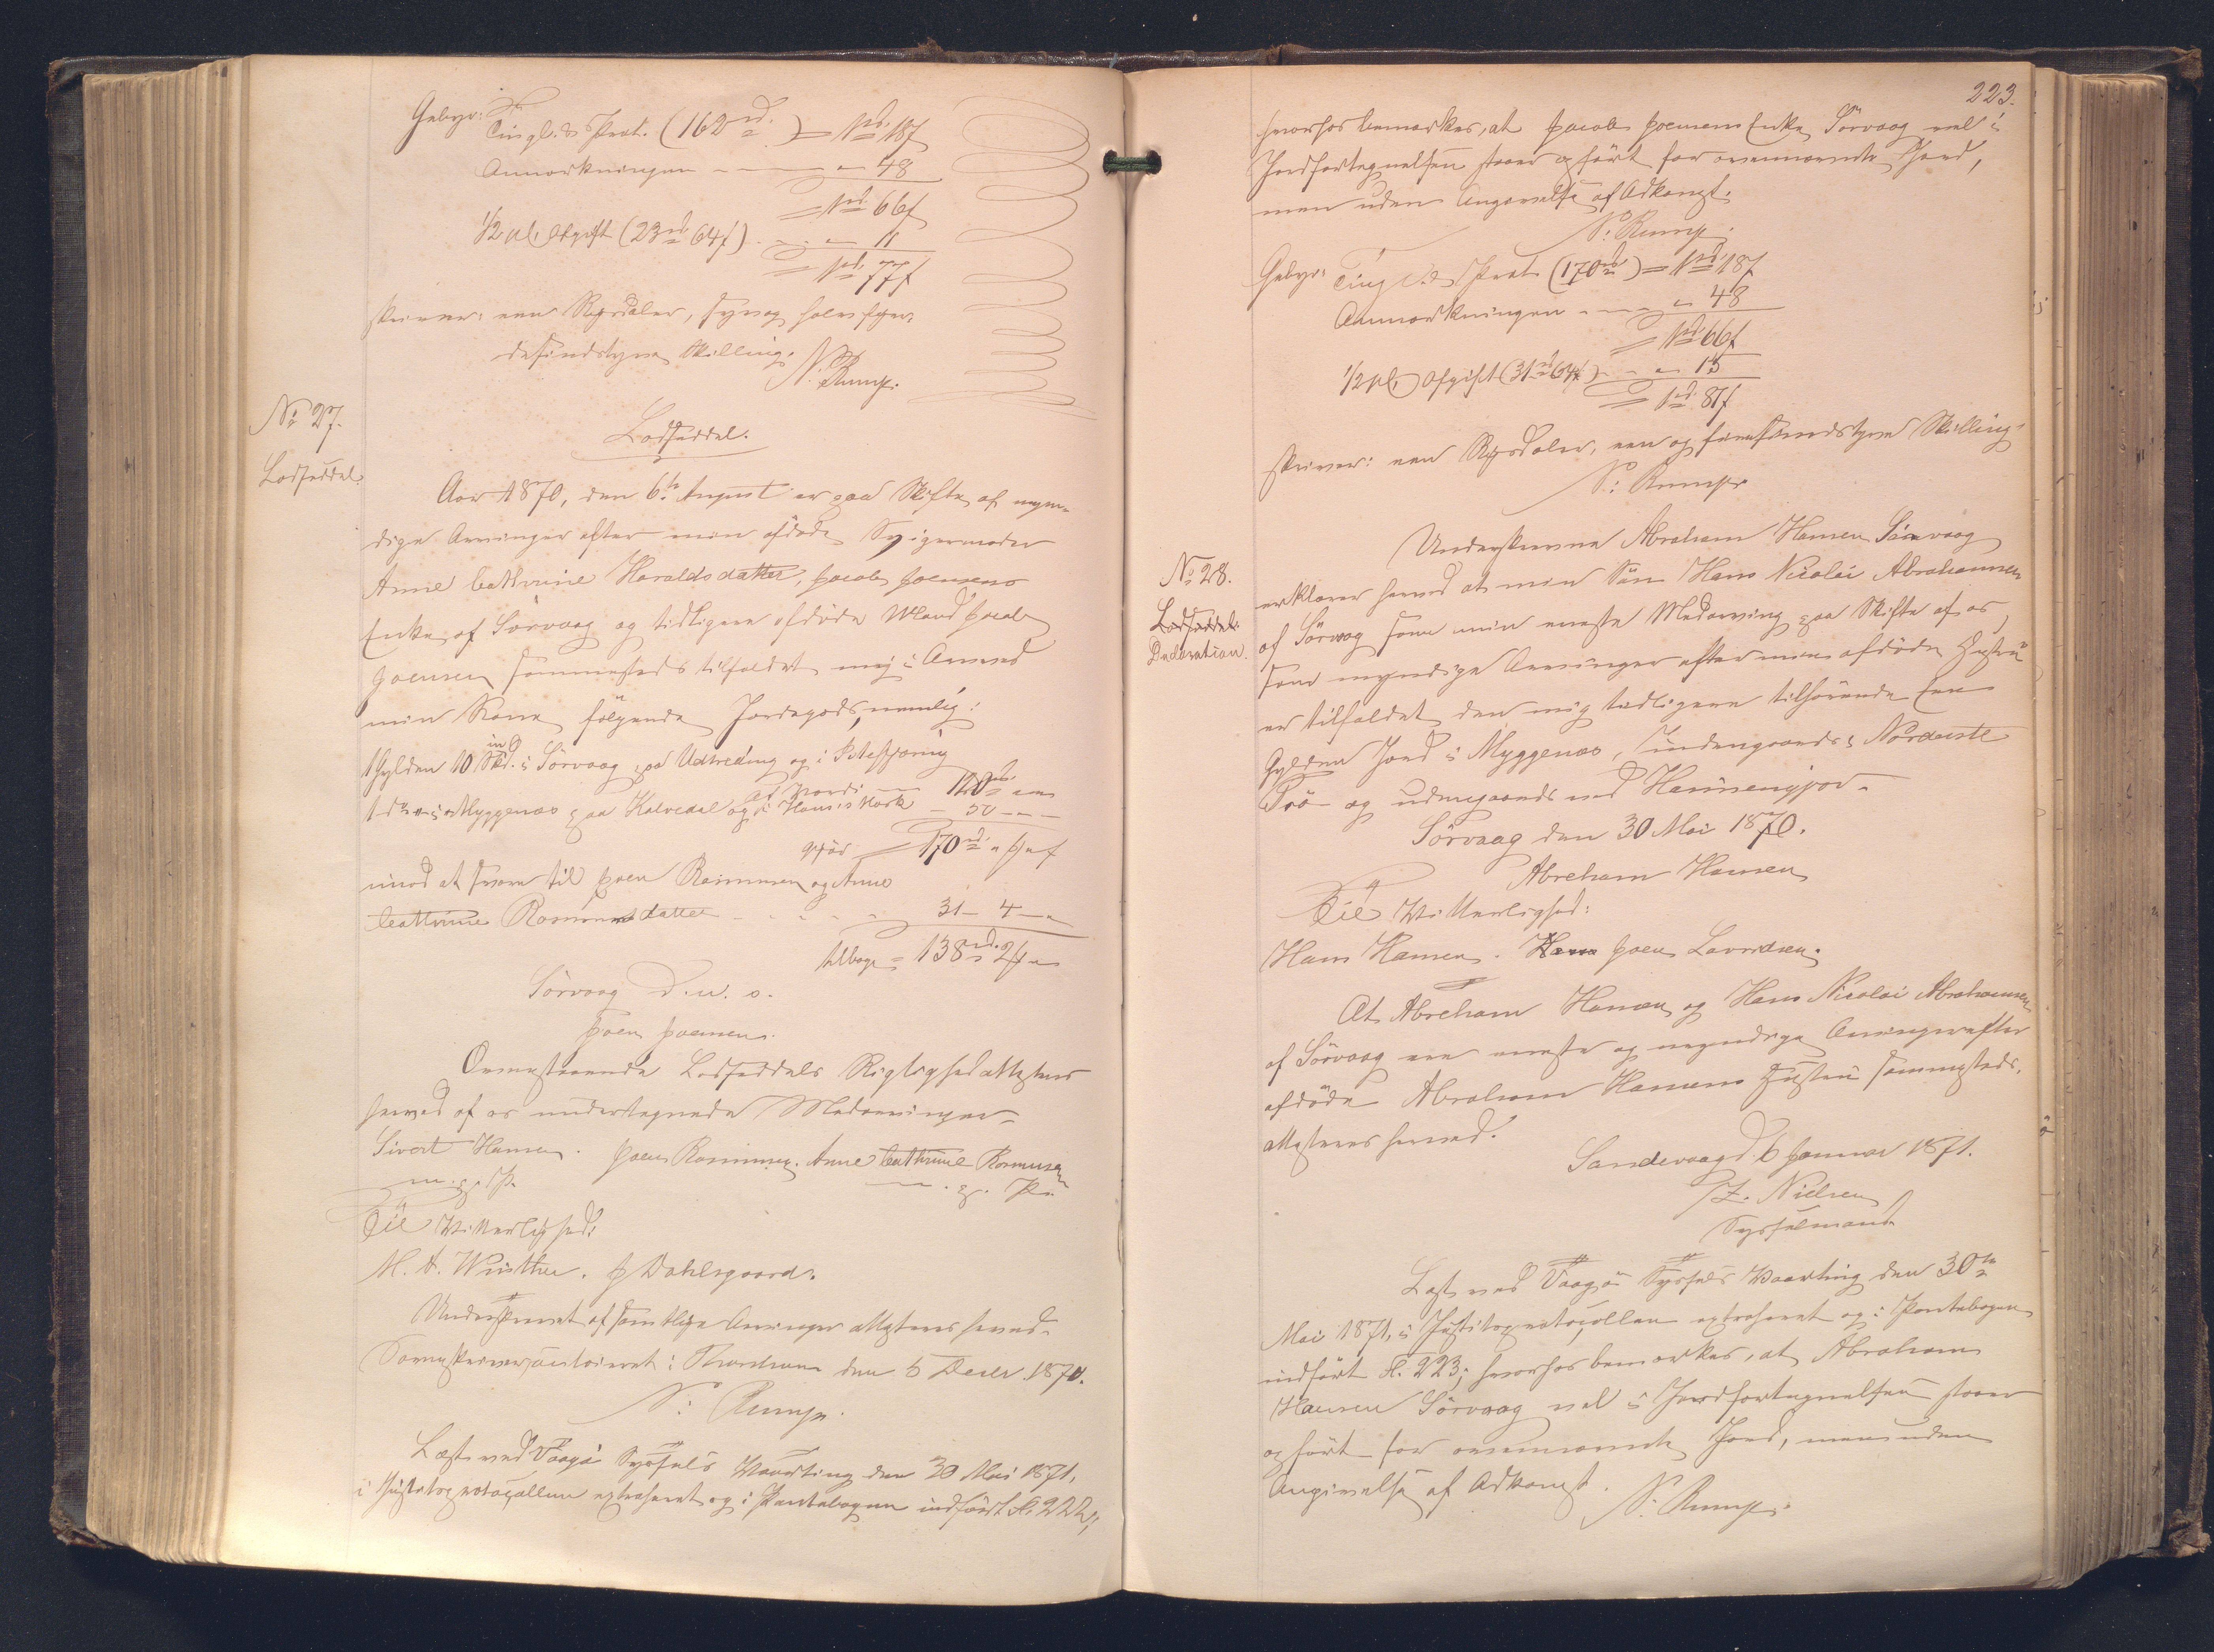 Gebyr: Tingl. & Prot. (162 rd.) = 1 rd. 18 f
Anmærkningen - - - " - 48
= 1 rd. 66 f
1/2 pCt. Afgift (23 rd 64 f) - - " - 11
= 1 rd. 77 f
skriver: een Rigsdaler, syv og halvfjer-
desindstyve Skilling.
N: Rump.
No 27.
Lodseddel.
Lodseddel.
Aar 1870, den 6te August er paa Skifte af myn-
dige Arvinger efter min afdøde Svigermoder
Anne Cathrine Haraldsdatter, Jacob Joensens
Enke af Sörvaag og tidligere afdøde Mand Jacob
Joensen sammesteds tilfaldet mig i Arv med
min Kone følgende Jordegods, nemlig:
1 Gylden 10 Skd. i Sörvaag paa Udtreding og i
1 do " i Myggenæs paa Kalvedal og i Hansis Mørk
120 rd. " "
50 - " -
gjör = 170 rd. " f " f
imod at svare til Joen Rasmussen og Anne
Cathrine Rasmusdatter - - - - 31 - 4 - "
tilbage = 138 rd. 2 f "
Sörvaag D. u. s.
Joen Joensen.
Ovenstaaende Lodseddels Rigtighed attesteres
herved af os undertegnede Medarvinger
Sivert Hansen. Joen Rasmussen. Anne Cathrine Rasmusen
m. p. P. m. p. P.
Til Vitterlighed:
M. A. Winther. J Dahlsgaard.
Underskrevet af samtlige Arvinger attesteres herved.
Sorenskrivercontoiret i Thorshavn den 5 Decbr. 1870.
N: Rump.
Læst ved Vaagö Syssels Vaarting den 30 Mai 1871,
i Justitsprotocollen extraheret og i Pantebogen indført Fl. 222;
223.
hvorhos bemærkes, at Jacob Joensens Enke Sörvaag vel i
Jordfortegnelsen staaer opført for ovennævnte Jord,
men uden Angivelse af Adkomst.
N: Rump.
Gebyr: Tingl. & Prot. (170 rd) = 1 rd. 18 f
Anmærkningen - - - " - 48
= 1 rd. 66 f
1/2 pCt. Afgift (31 rd 64 f) - - " - 15
= 1 rd. 81 f
skriver: een Rigsdaler, een og fiirsindstyve Skilling.
N: Rump
No 28.
Lodseddel.
Declaration.
Underskrevne Abraham Hansen Sörvaag
erklærer herved at min Sön Hans Nicolai Abrahamsen
af Sörvaag som min eneste Medarving paa Skifte af os,
som myndige Arvinger efter min afdøde Hustru
er tilfaldet den mig tidligere tilhørende Een
Gylden Jord i Myggenæs, indengaards i Nordeuste
Trö og udengaards ved Hansengjov.
Sörvaag den 30 Mai 1870.
Abraham Hansen
Til Vitterlighed:
Hans Hansen. Joen Lavridsen.
At Abraham Hansen og Hans Nicolai Abrahamsen
af Sörvaag ere eneste og myndige Arvinger efter
afdøde Abraham Hansens Hustru sammesteds,
attesteres herved.
Sandevaag d. 6 Januar 1871.
Z. Nielsen
Sysselmand.
Læst ved Vaagö Syssels Vaarting den 30te
Mai 1871, i Justitsprotocollen extraheret og i Pantebogen
indført Fl. 223; hvorhos bemærkes, at Abraham
Hansen Sörvaag vel i Jordfortegnelsen staaer
opført for ovennævnte Jord, men uden
Angivelse af Adkomst.
N: Rump.